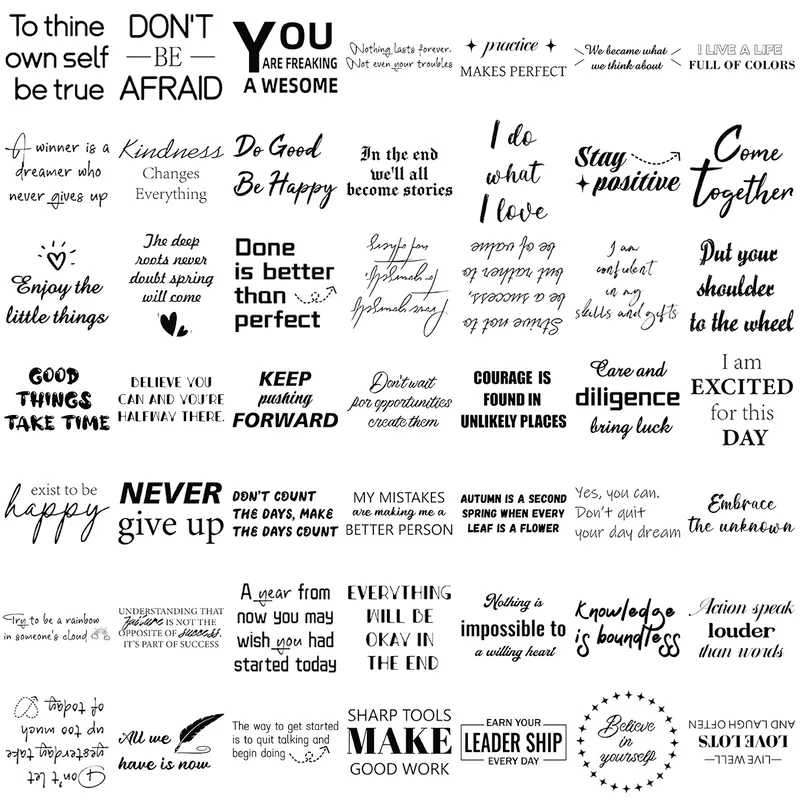 To thine
own self
be true
DON'T
BE
AFRAID
YOU
ARE FREAKING
AWESOME
Nothing lasts forever.
Not even your troubles
practice
MAKES PERFECT
We became what
we think about
I LIVE A LIFE
FULL OF COLORS
A winner is a
dreamer who
never gives up
Kindness
Changes
Everything
Do Good
Be Happy
In the end
we'll all
become stories
I do
what
I love
Stay
positive
Come
together
Enjoy the
little things
The deep
roots never
doubt spring
will come
Done
is better
than
perfect
Prove yourself
To yourself,
not others
Strive not to
be a success,
but rather to
be of value
I am
confident
in my
skills and gifts
Put your
shoulder
to the wheel
GOOD
THINGS
TAKE TIME
BELIEVE YOU
CAN AND YOU'RE
HALFWAY THERE.
KEEP
pushing
FORWARD
Don't wait
for opportunities
create them
COURAGE IS
FOUND IN
UNLIKELY PLACES
Care and
diligence
bring luck
I am
EXCITED
for this
DAY
exist to be
happy
NEVER
give up
DON'T COUNT
THE DAYS, MAKE
THE DAYS COUNT
MY MISTAKES
are making me a
BETTER PERSON
AUTUMN IS A SECOND
SPRING WHEN EVERY
LEAF IS A FLOWER
Yes, you can.
Don't quit
your day dream
Embrace
the unknown
Try to be a rainbow
in someone's cloud
UNDERSTANDING THAT
failure IS NOT THE
OPPOSITE OF success,
IT'S PART OF SUCCESS
A year from
now you may
wish you had
started today
EVERYTHING
WILL BE
OKAY IN
THE END
Nothing is
impossible to
a willing heart
Knowledge
is boundless
Action speak
louder
than words
Don't let
yesterday take
up too much
of today
All we
have is now
The way to get started
is to quit talking and
begin doing
SHARP TOOLS
MAKE
GOOD WORK
EARN YOUR
LEADER SHIP
EVERY DAY
Believe
in
yourself
LIVE WELL
LOVE LOTS
AND LAUGH OFTEN